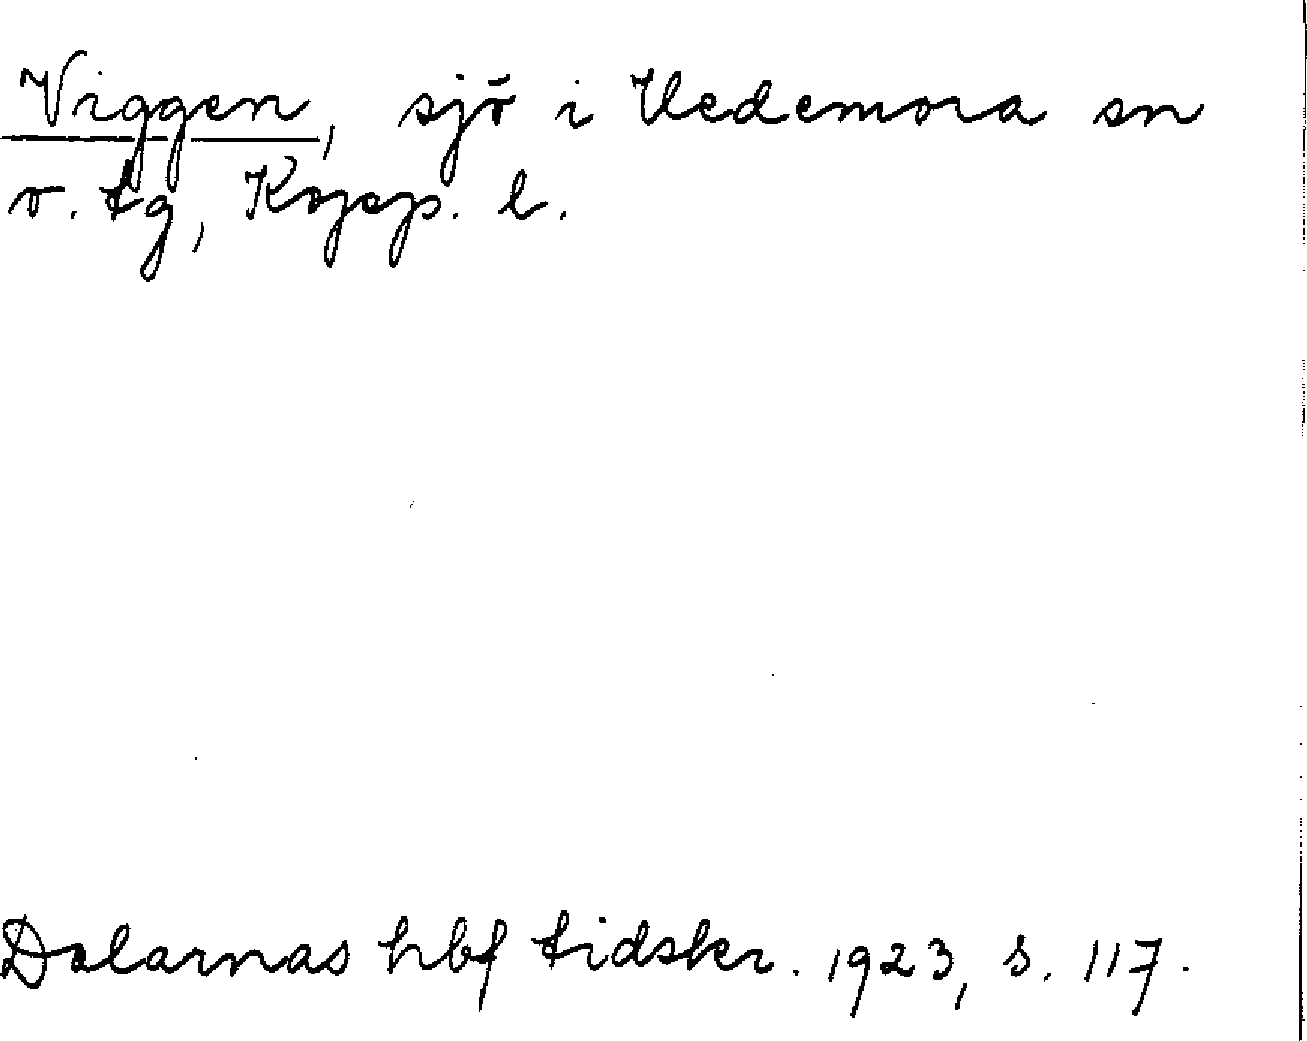 Viggen, sjö i Hedemora sn
o. tg, Kopp. l.
Dalarnas hbf tidskr. 1923, s. 117.